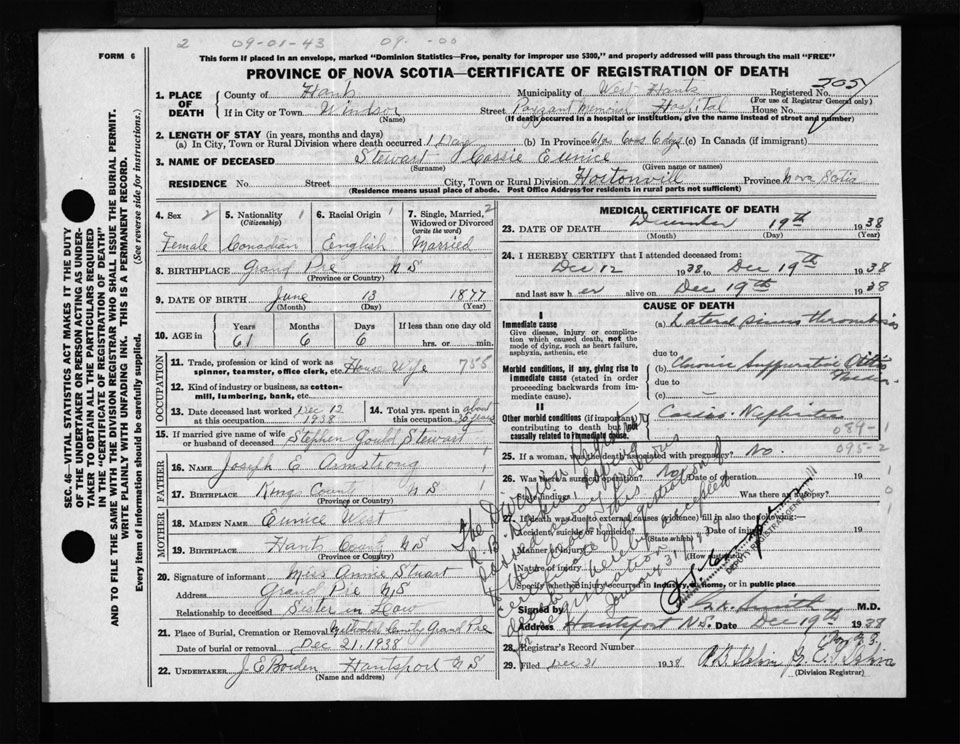 2 09-01-43 09- -00
FORM 6
This form if placed in an envelope, marked "Dominion Statistics—Free, penalty for improper use $300," and properly addressed will pass through the mail "FREE"
PROVINCE OF NOVA SCOTIA—CERTIFICATE OF REGISTRATION OF DEATH
SEC. 46—VITAL STATISTICS ACT MAKES IT THE DUTY
OF THE UNDERTAKER OR PERSON ACTING AS UNDER-
TAKER TO OBTAIN ALL THE PARTICULARS REQUIRED
IN THE "CERTIFICATE OF REGISTRATION OF DEATH"
AND TO FILE THE SAME WITH THE DIVISION REGISTRAR WHO SHALL ISSUE THE BURIAL PERMIT.
WRITE PLAINLY WITH UNFADING INK. THIS IS A PERMANENT RECORD.
Every item of information should be carefully supplied. (See reverse side for instructions.)
1. PLACE OF DEATH
County of Hants Municipality of West Hants Registered No.
(For use of Registrar General only)
If in City or Town Windsor Street Payzant Memorial Hospital House No.
(Name) (If death occurred in a hospital or institution, give the name instead of street and number)
2. LENGTH OF STAY (in years, months and days)
(a) In City, Town or Rural Division where death occurred 1 Day (b) In Province 61 6 6 days (c) In Canada (if immigrant)
3. NAME OF DECEASED Stewart Cassie Eunice
(Surname) (Given name or names)
RESIDENCE No. Street City, Town or Rural Division Hortonvill Province Nova Scotia
(Residence means usual place of abode. Post Office Address for residents in rural parts not sufficient)
4. Sex 2 5. Nationality 1 6. Racial Origin 1 7. Single, Married, 2
(Citizenship) Widowed or Divorced
(write the word)
Female Canadian English Married
8. BIRTHPLACE Grand Pre N S
(Province or Country)
9. DATE OF BIRTH June 13 1877
(Month) (Day) (Year)
10. AGE in Years Months Days If less than one day old
61 6 6 hrs. or min.
OCCUPATION
11. Trade, profession or kind of work as
spinner, teamster, office clerk, etc. House Wife 755
12. Kind of industry or business, as cotton-
mill, lumbering, bank, etc.
13. Date deceased last worked at this occupation Dec 12 1938 14. Total yrs. spent in this occupation about 36 years
15. If married give name of wife
or husband of deceased Stephen Gould Stewart
FATHER
16. NAME Joseph E Armstrong
17. BIRTHPLACE Kings County N S
MOTHER
18. MAIDEN NAME Eunice West
19. BIRTHPLACE Hants County N S
(Province or Country)
20. Signature of informant Miss Annie Stuart
Address Grand Pre N S
Relationship to deceased Sister in Law
21. Place of Burial, Cremation or Removal Grand Pre
Date of burial or removal Dec 21, 1938
22. UNDERTAKER J E Borden Hantsport N S
(Name and address)
MEDICAL CERTIFICATE OF DEATH
23. DATE OF DEATH December 19th 1938
(Month) (Day) (Year)
24. I HEREBY CERTIFY that I attended deceased from:
Dec 12 1938 to Dec 19th 1938
and last saw h er alive on Dec 19th 1938
CAUSE OF DEATH
I
Immediate cause
Give disease, injury or complica-
tion which caused death, not the
mode of dying, such as heart failure,
asphyxia, asthenia, etc
Morbid conditions, if any, giving rise to
immediate cause (stated in order
proceeding backwards from im-
mediate cause).
II
Other morbid conditions (if important)
contributing to death but not
causally related to immediate cause.
(a) Lateral sinus thrombosis
due to
(b) Chronic Suppurative Otitis Media
due to
(c)
Nephritis
089-1
25. If a woman, was the death associated with pregnancy? No. 095-2
26. Was there a surgical operation? No Date of operation 19
State findings Was there an autopsy?
27. If death was due to external causes (violence) fill in also the following:—
Accident, suicide or homicide? Date of injury 19
(State which)
Manner of injury
(How sustained)
Nature of injury
Specify whether injury occurred in industry, in home, or in public place
The Division Registrar
January 31
DEPUTY REGISTRAR GENERAL
Signed by Smith M.D.
Address Hantsport N.S. Date Dec 19th 1938
28. Registrar's Record Number
29. Filed Dec 21 1938
(Division Registrar)